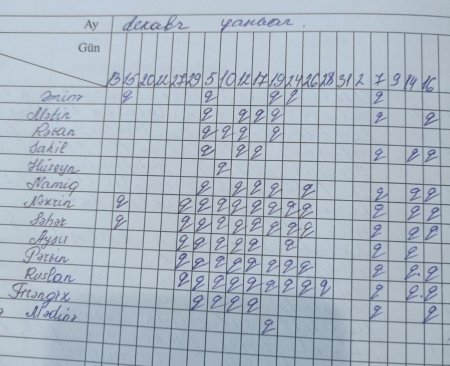 Ay декабр январ.
Gün
13 15 20 22 27 29 5 10 12 17 19 24 26 28 31 2 7 9 14 16
Əminə q q q q q
Mətin q q q q q q
Rəvan q q q q
Sahil q q q q q q
Hüseyn q
Namiq q q q q q q q q
Nəzrin q q q q q q q q q q q q
Səhər q q q q q q q q q q q q
Aysu q q q q q q q q
Pərvin q q q q q q q q q q q
Ruslan q q q q q q q q q q q q
Frəngiz q q q q q q
Mədinə q